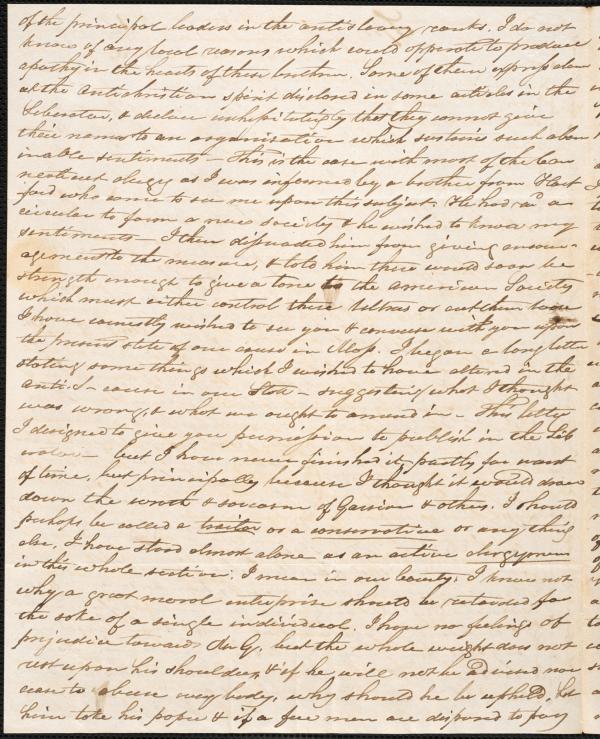 of the principal leaders in the antislavery ranks. I do not
know of any local reasons which could opperate to produce
apathy in the hearts of these brethren. Some of them express alarm
at the antichristian spirit disclosed in some articles in the
Liberator, & declare unhesitatingly that they cannot give
their names to an organization which sustains such abom
inable sentiments — This is the case with most of the Con
necticut clergy as I was informed by a brother from Hart
ford who came to see me upon this subject. He had a
circular to form a new society & he wished to know my
sentiments — I then dissuaded him from giving encour-
agement to the measure, & told him there would soon be
strength enough to give a tone to the American Society
which must either control these ultras or cast them
I have earnestly wished to see you & converse with you upon
the present state of our cause in Mass. I began a long letter
stating some things which I wished to have altered in the
anti-S— cause in our State — suggesting what I thought
was wrong, & what we ought to amend in — This letter
I designed to give you permission to publish in the Lib
erator — but I have never finished it, partly for want
of time, but principally because I thought it would draw
down the wrath & sarcasm of Garrison & others. I should
perhaps be called a traitor or a conservative or any thing
else. I have stood almost alone as an active clergyman
in this whole section. I mean in our County. I know not
why a great moral enterprise should be retarded for
the sake of a single individual. I have no feelings of
prejudice towards Mr G, but the whole weight does not
rest upon his shoulders, & if he will not be advised nor
cease to abuse every body, why should he be upheld. Let
him take his paper & if a few men are disposed to pay